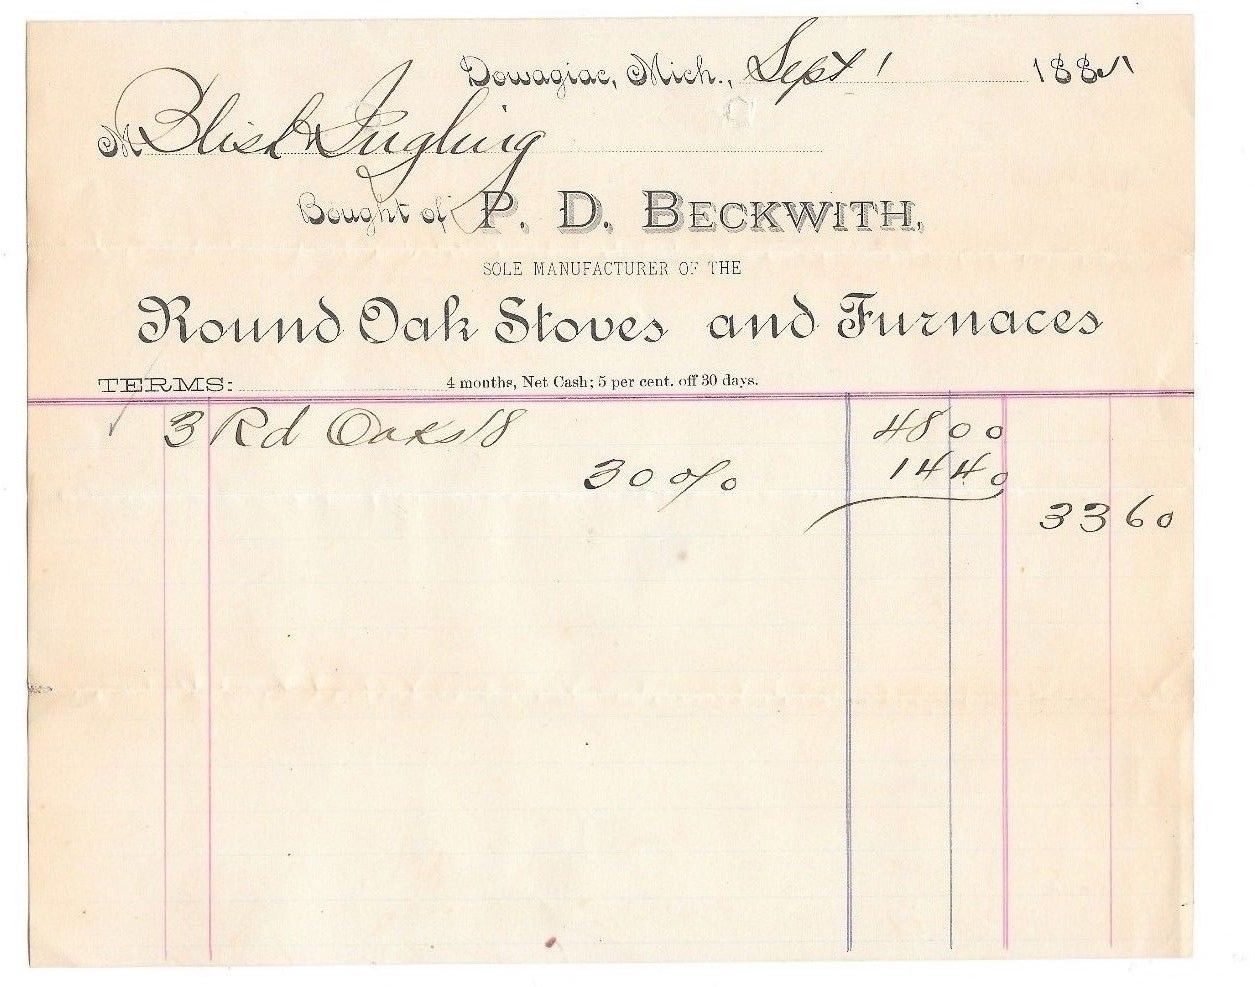 Dowagiac, Mich., Sept 1 188
M Blish & Ingling
Bought of P. D. BECKWITH,
SOLE MANUFACTURER OF THE
Round Oak Stoves and Furnaces
TERMS: 4 months, Net Cash; 5 per cent. off 30 days.
3 Rd Oaks 18 48 00
30 % 14 40
33 60